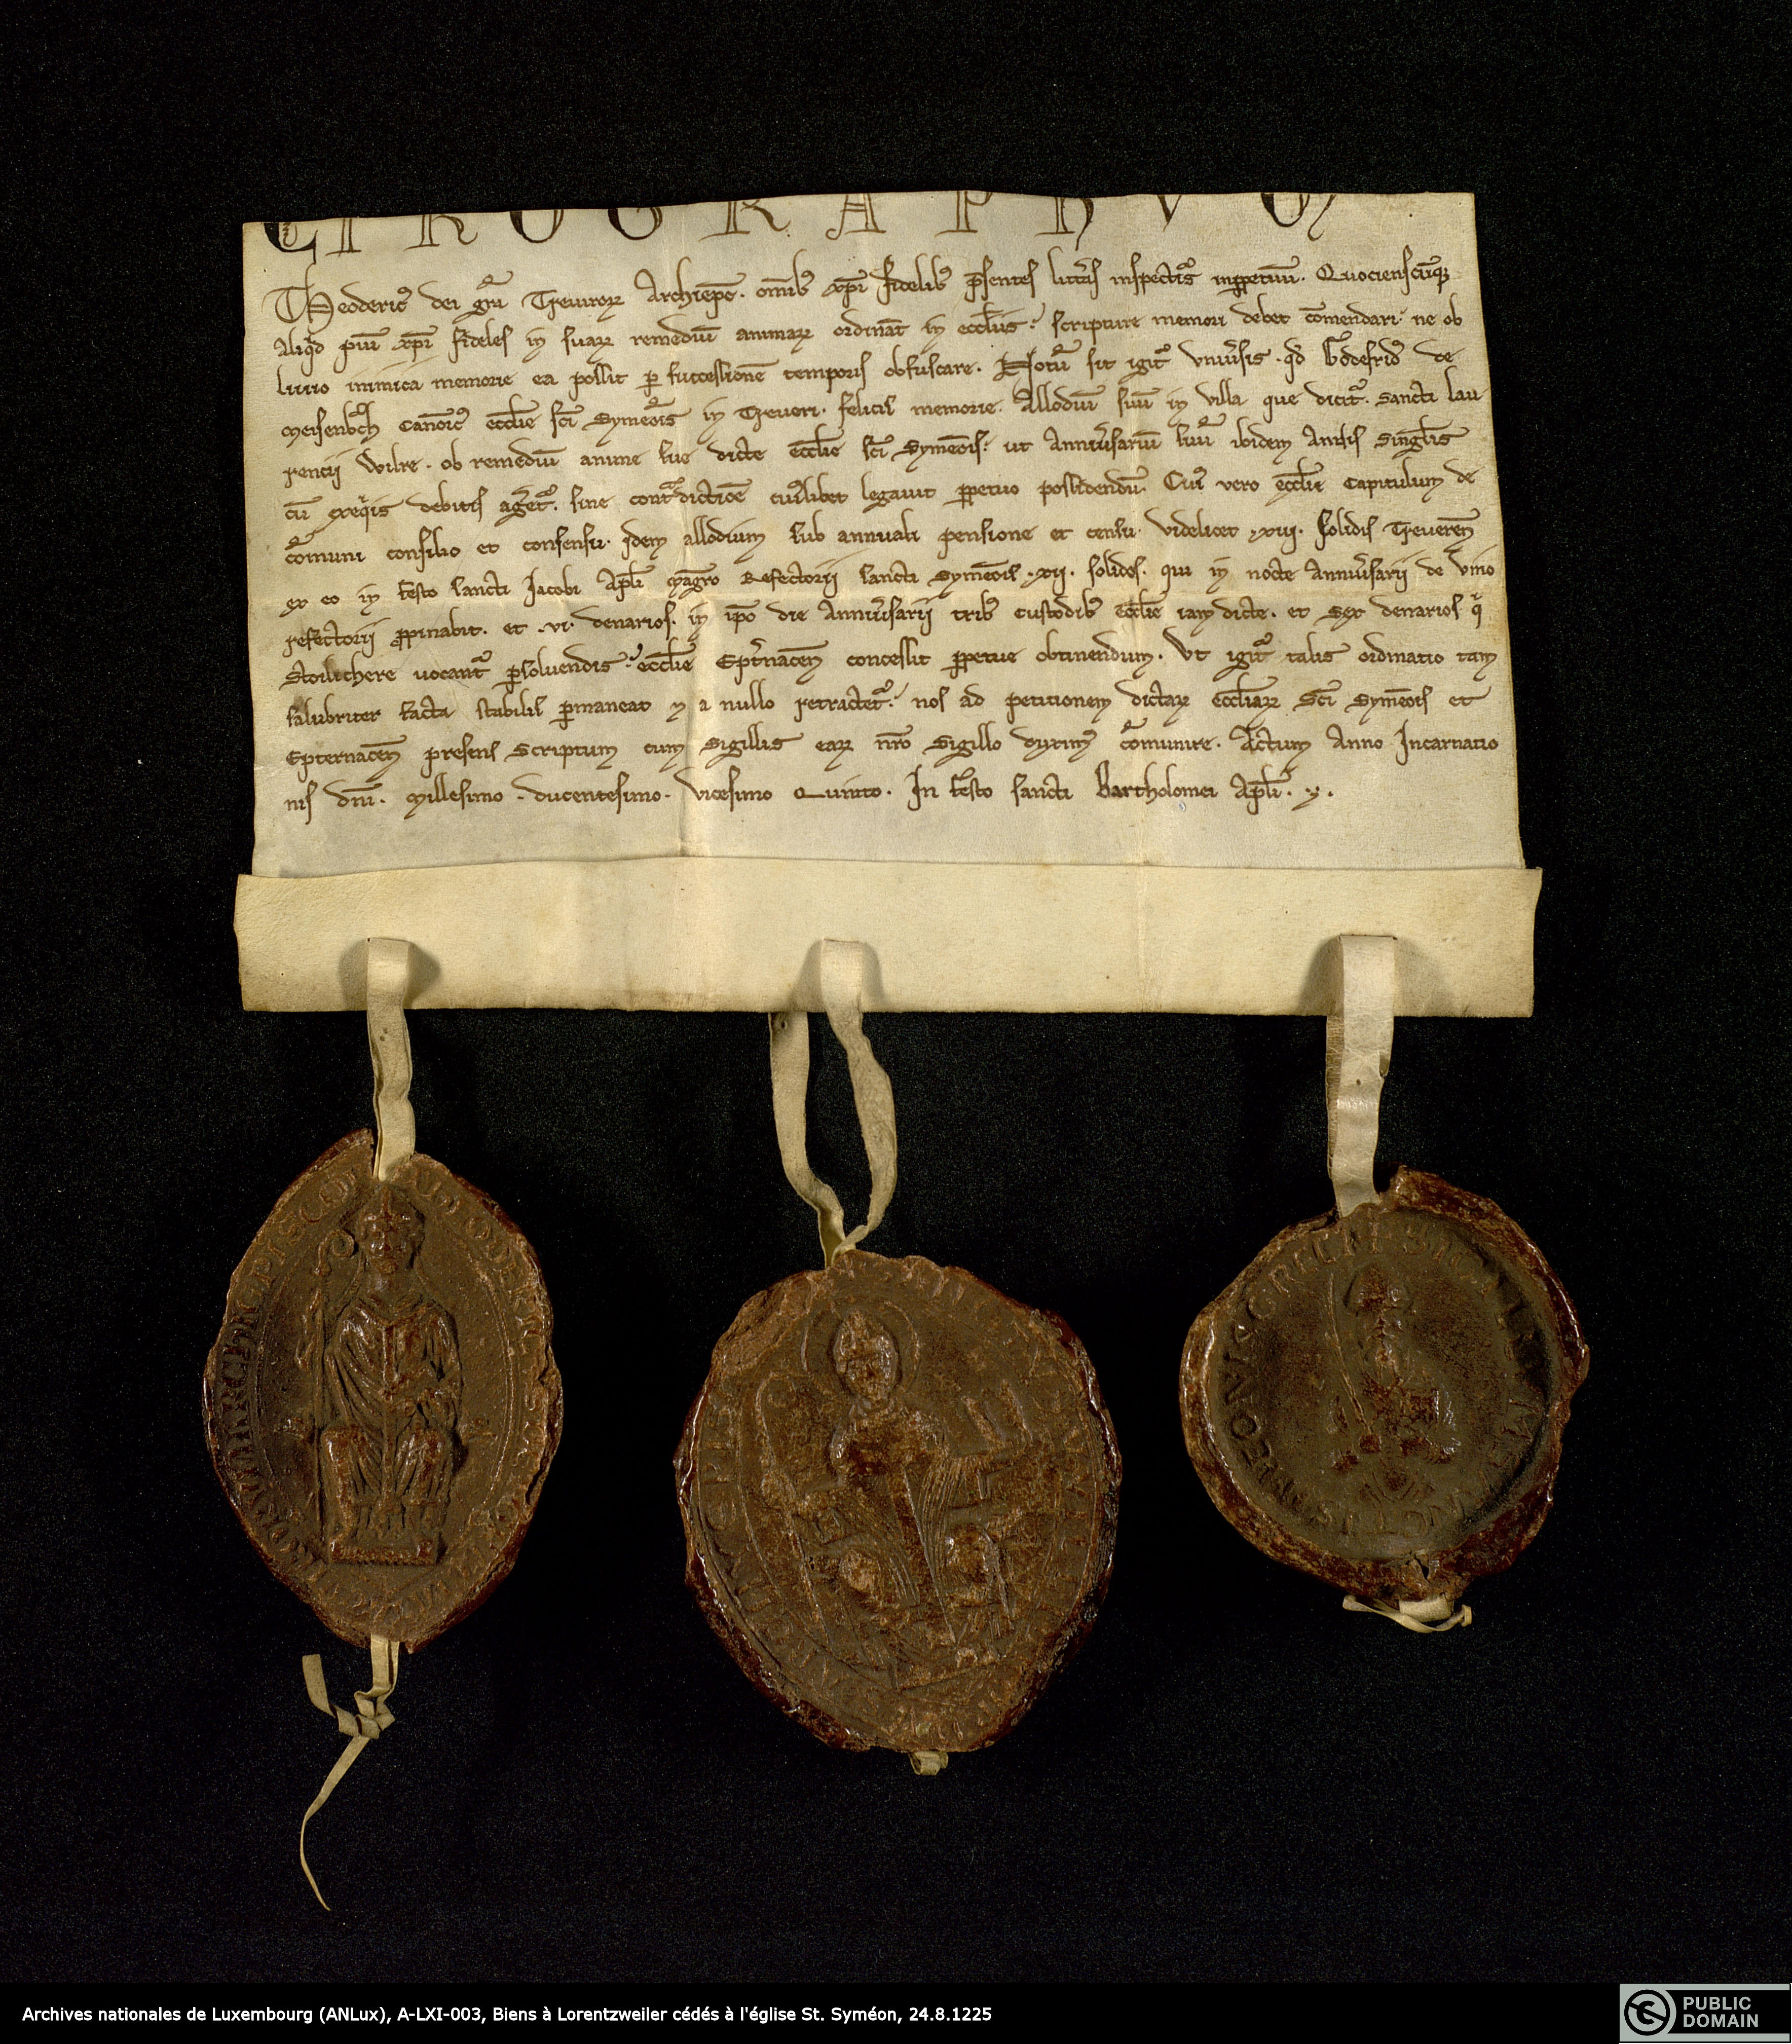 CIROGRAPHVM
Theoderic9 dei gr̃a Treuiroꝝ Archiep̃c. om̃ib9 xp̃i fidelib9 p̃sentes litt̃as inspectur̃ inꝑpetuũ. Quocienscũq;
Aliqͥd piũ xp̃i fideles in suaꝝ remediũ animaꝝ ordinãt in eccl̃iis. scripture memori debet cõmendari. ne ob
liuio inimica memorie ea possit ꝑ successionẽ temporis obfuscare. Notũ sit igit̃ vniũsis. qd̃ Godefrid9 de
Meisenb̃ch canõic9 eccl̃ie sc̃i Symeõis in Treueri. felicis memorie. Allodiũ suũ in villa que dicit̃. Sancti lau
rencii Wilre. ob remediũ anime sue dicte eccl̃ie sc̃i Symeõis. ut anniũsariũ suũ ibidem annis singl̃is
cũ exeqͥis debitis aget̃. sine cont̃dictiõe cuiuslibet legauit ꝑpetuo possidendũ. Cui9 vero eccl̃ie capitulum de
cõmuni consilio et consensu. idem allodium sub annuali pensione et censu. videlicet .xiii. solidis Treueren̄
ex eo in festo sancti Jacobi Apl̃i magr̃o Refectorii sancti Symeõis .xii. solidos. qui in nocte anniũsarii de vino
refectorii ꝓpinabit. et .vi. denarios. in ip̃o die Anniũsarii trib9 custodib9 eccl̃ie iam dicte. et Sex denarios qͥ
Stoilichere uocant̃ ꝑsoluendis. eccl̃ie Ept̃nacen̄ concessit ꝑpetue obtinendum. Vt igit̃ talis ordinatio tam
salubriter facta stabilis ꝑmaneat & a nullo retractet̃. nos ad petitionem dictaꝝ eccl̃iaꝝ Sc̃i Symeõis et
Epternacen̄ presens scriptum cum sigillis eaꝝ nr̃o Sigillo duxim9 cõmunire. Actum Anno Incarnatio
nis dñi. Millesimo. ducentesimo. vicesimo Quinto. In festo sancti Bartholomei Apl̃i.
Archives nationales de Luxembourg (ANLux), A-LXI-003, Biens à Lorentzweiler cédés à l'église St. Syméon, 24.8.1225
PUBLIC
DOMAIN